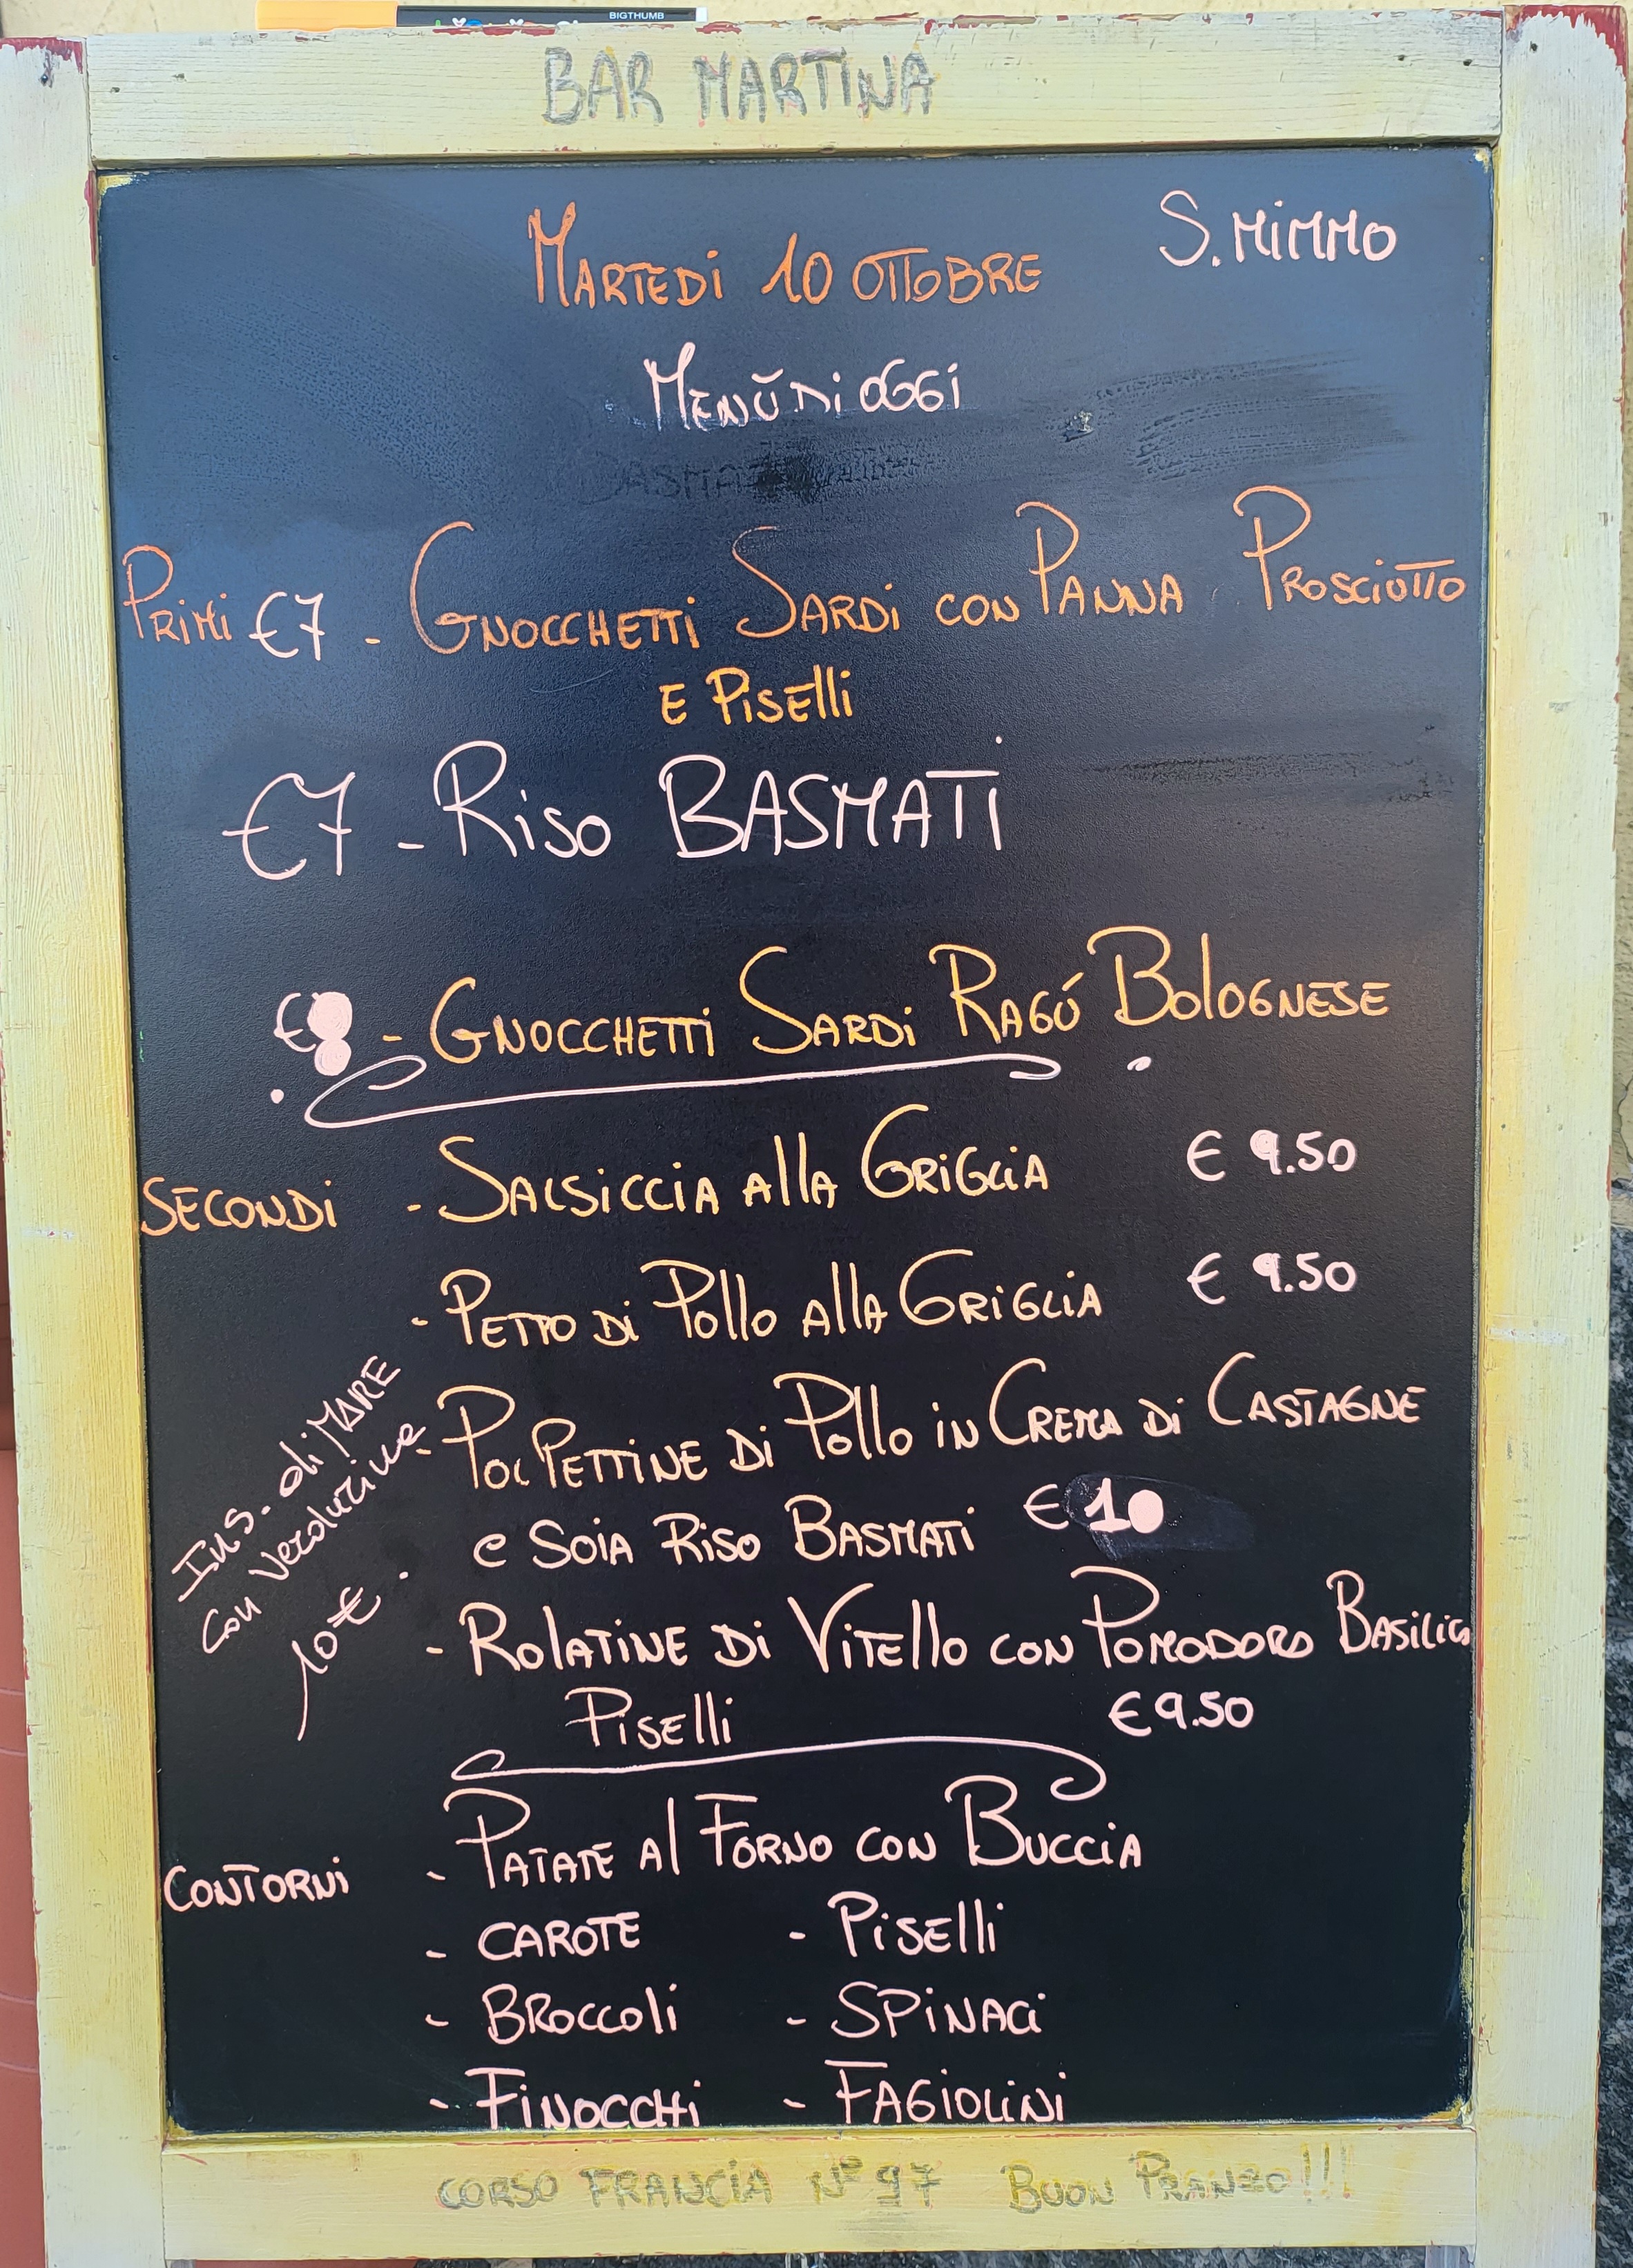 BIGTHUMB
BAR MARTINA
S. MIMMO
MARTEDI 10 OTTOBRE
MENÙ DI OGGI
PRIMI €7 - GNOCCHETTI SARDI CON PANNA PROSCIUTTO
E PISELLI
€7 - RISO BASMATI
€8 - GNOCCHETTI SARDI RAGÚ BOLOGNESE
SECONDI - SALSICCIA ALLA GRIGLIA € 9.50
- PETTO DI POLLO ALLA GRIGLIA € 9.50
- POLPETTINE DI POLLO IN CREMA DI CASTAGNE
e SOIA RISO BASMATI € 10
Ins. di MARE
con verdurine
10€
- ROLATINE DI VITELLO CON POMODORO BASILICO
PISELLI €9.50
CONTORNI - PATATE AL FORNO CON BUCCIA
- CAROTE - PISELLI
- BROCCOLI - SPINACI
- FINOCCHI - FAGIOLINI
CORSO FRANCIA N° 97 BUON PRANZO!!!